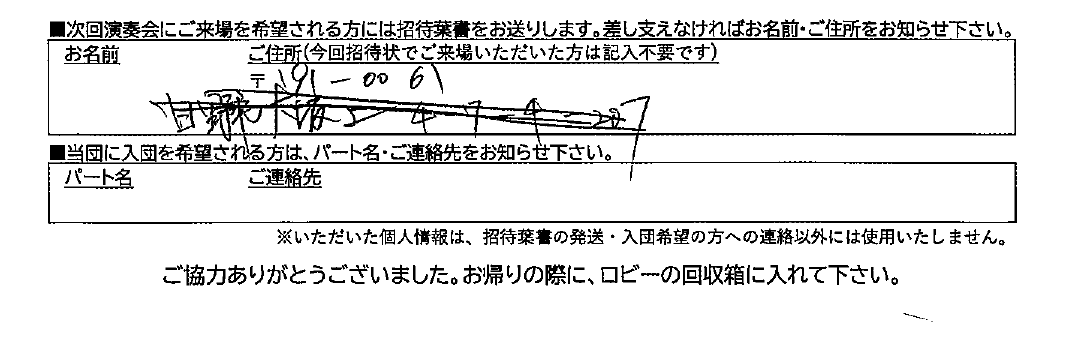 ■次回演奏会にご来場を希望される方には招待葉書をお送りします。差し支えなければお名前・ご住所をお知らせ下さい。
お名前 ご住所(今回招待状でご来場いただいた方は記入不要です)
〒191-0061
■当団に入団を希望される方は、パート名・ご連絡先をお知らせ下さい。
パート名 ご連絡先
※いただいた個人情報は、招待葉書の発送・入団希望の方への連絡以外には使用いたしません。
ご協力ありがとうございました。お帰りの際に、ロビーの回収箱に入れて下さい。